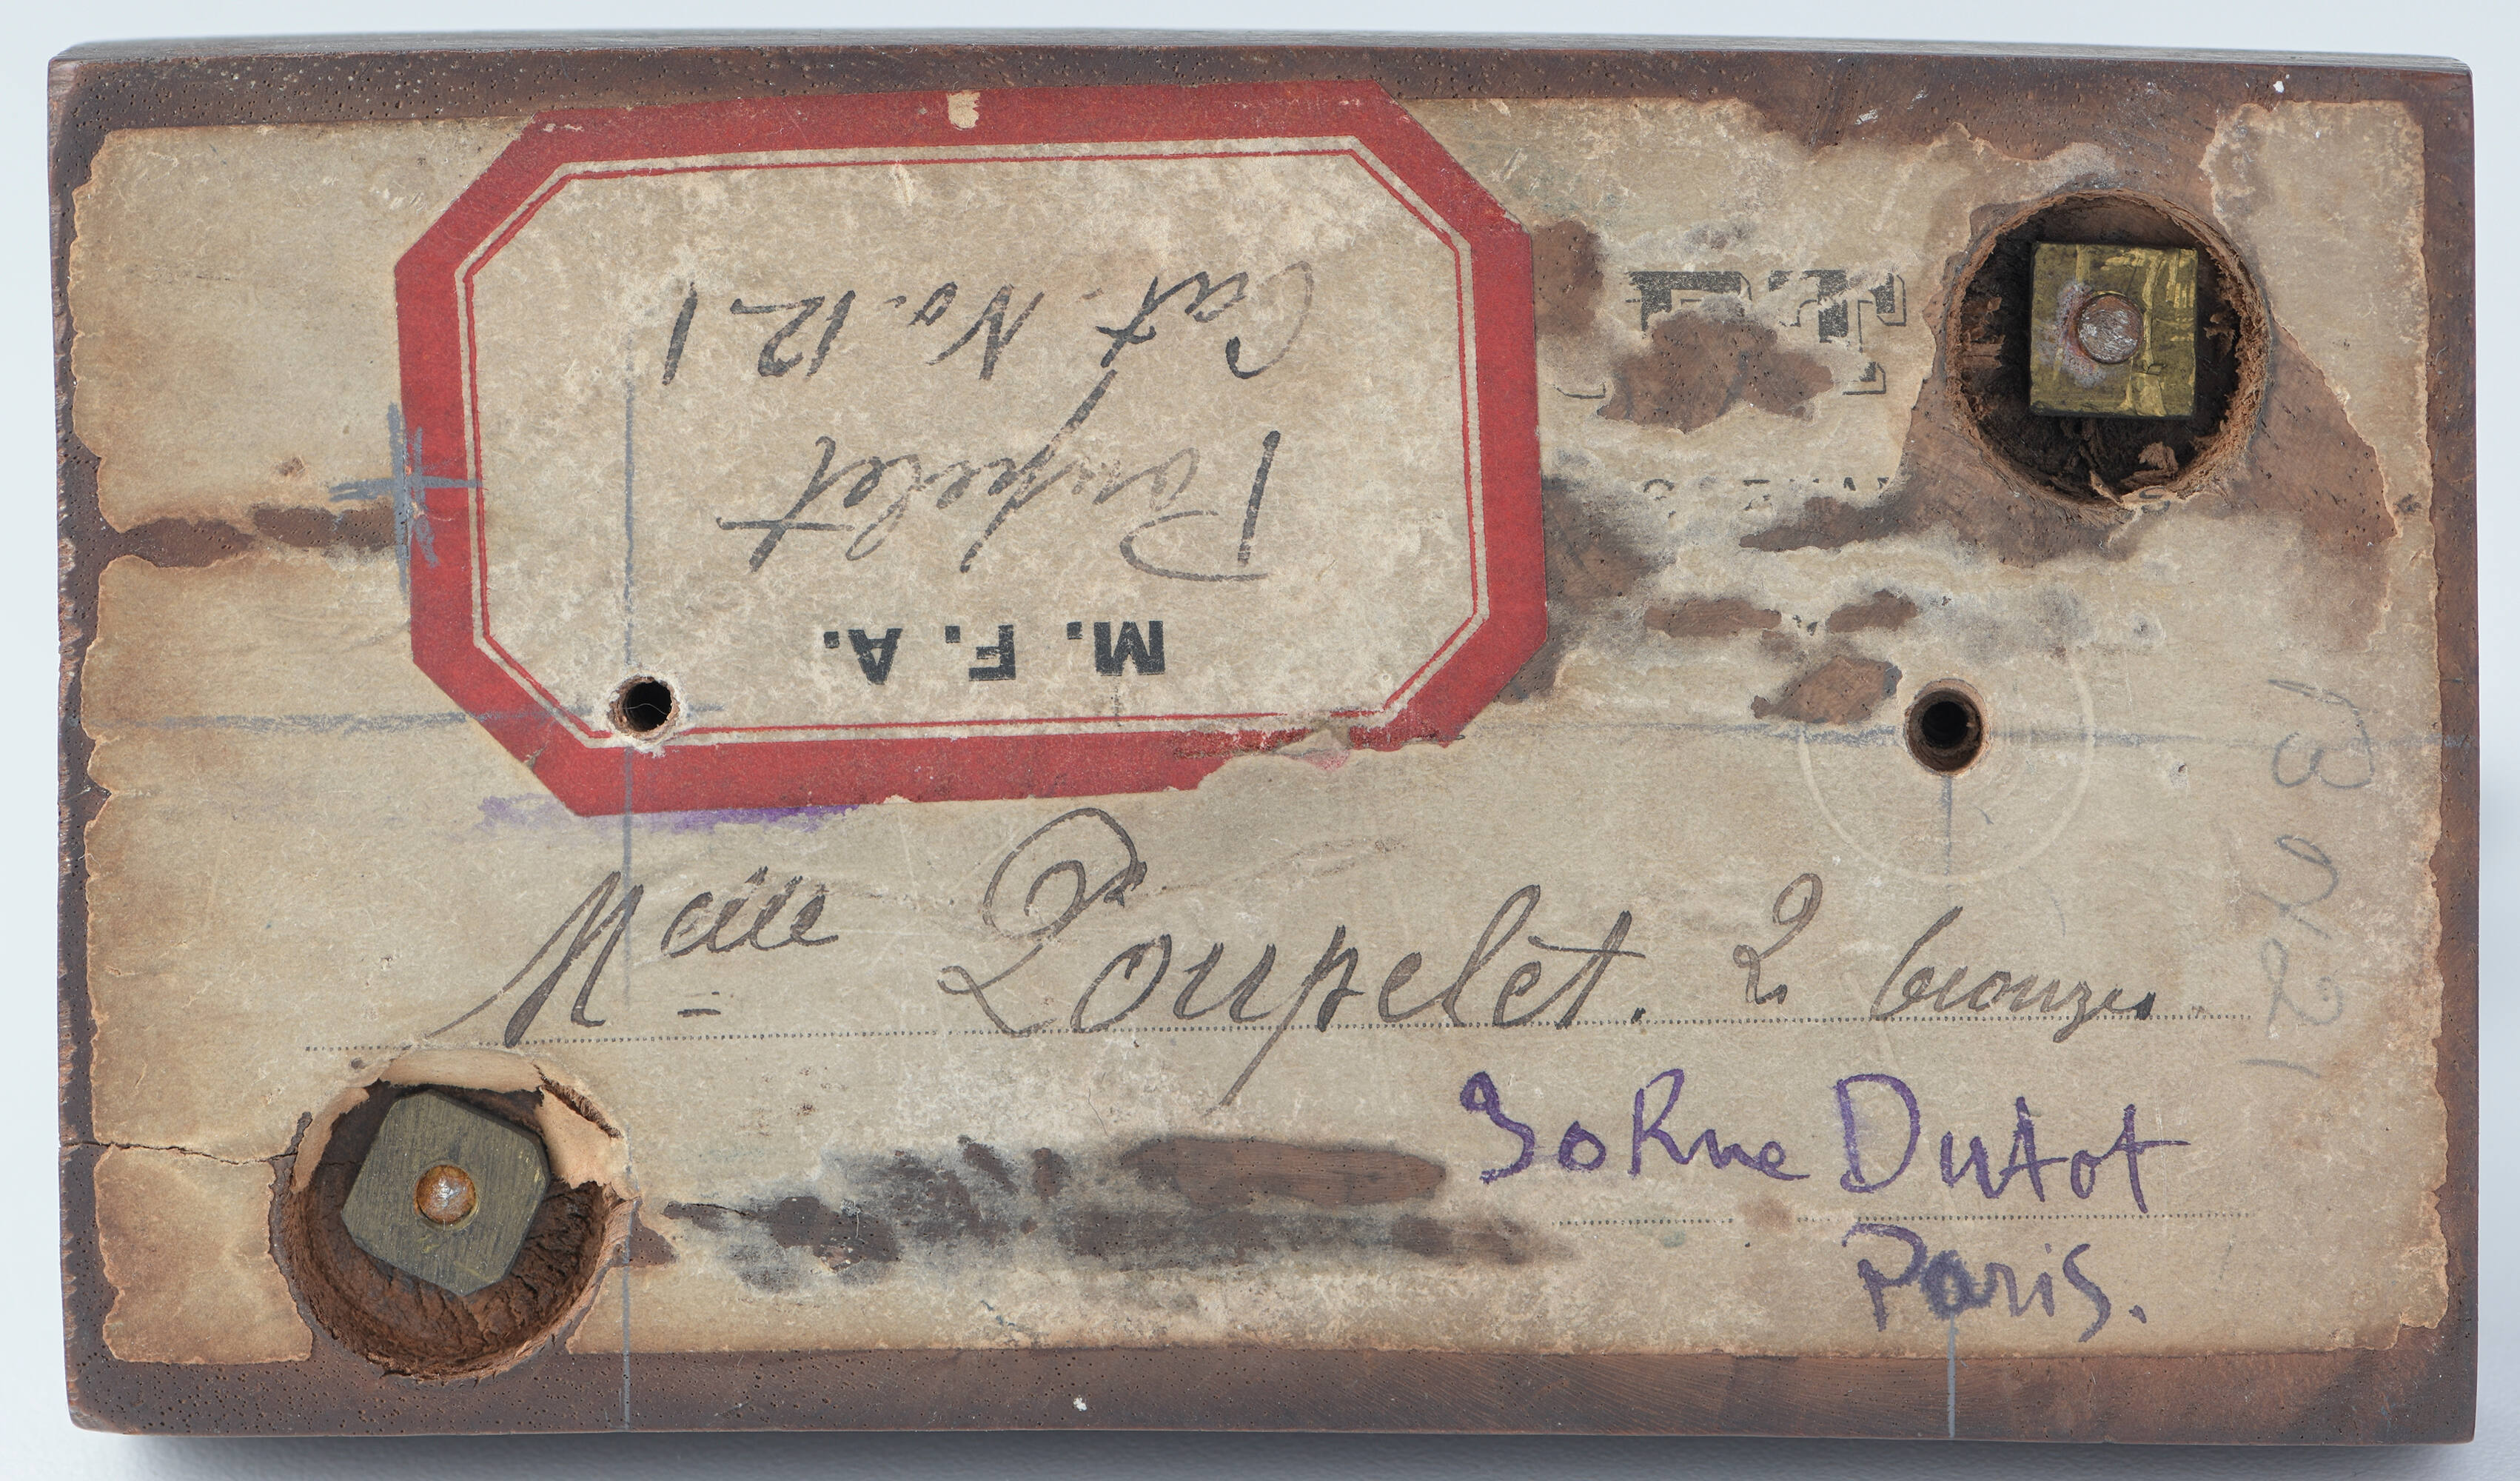 M. F. A.
Poupelet
Cat. No. 121
Melle Poupelet. 2 bronzes.
30 Rue Dutot
Paris.